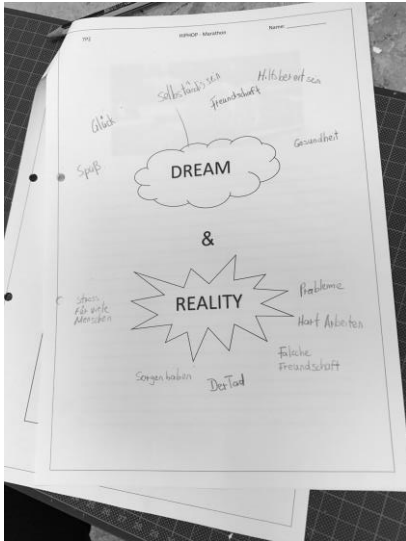 TMJ
HIPHOP - Marathon
Name:
Selbständig sein
Hilfsbereit sein
Freundschaft
Glück
Gesundheit
Spaß
DREAM
&
REALITY
Stress
Für viele
Menschen
Probleme
Hart Arbeiten
Falsche
Freundschaft
Sorgen haben
Der Tod